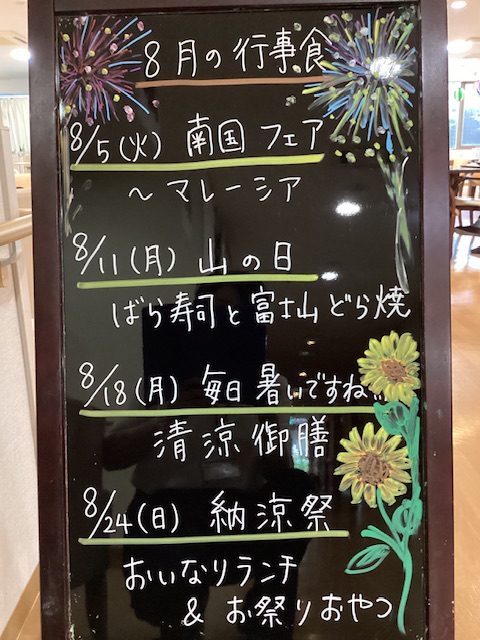 8月の行事食
8/5(火) 南国フェア
～マレーシア
8/11(月) 山の日
ばら寿司と富士山どら焼
8/18(月) 毎日暑いですね!!
清涼御膳
8/24(日) 納涼祭
おいなりランチ
& お祭りおやつ